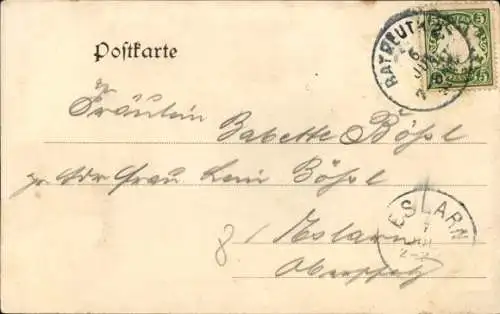 Postkarte
BAYREUTH
5 5
Fräulein Babette Bößl
pr. Adr. Frau Bößl
Eslarn
Oberpfalz
8
ESLARN